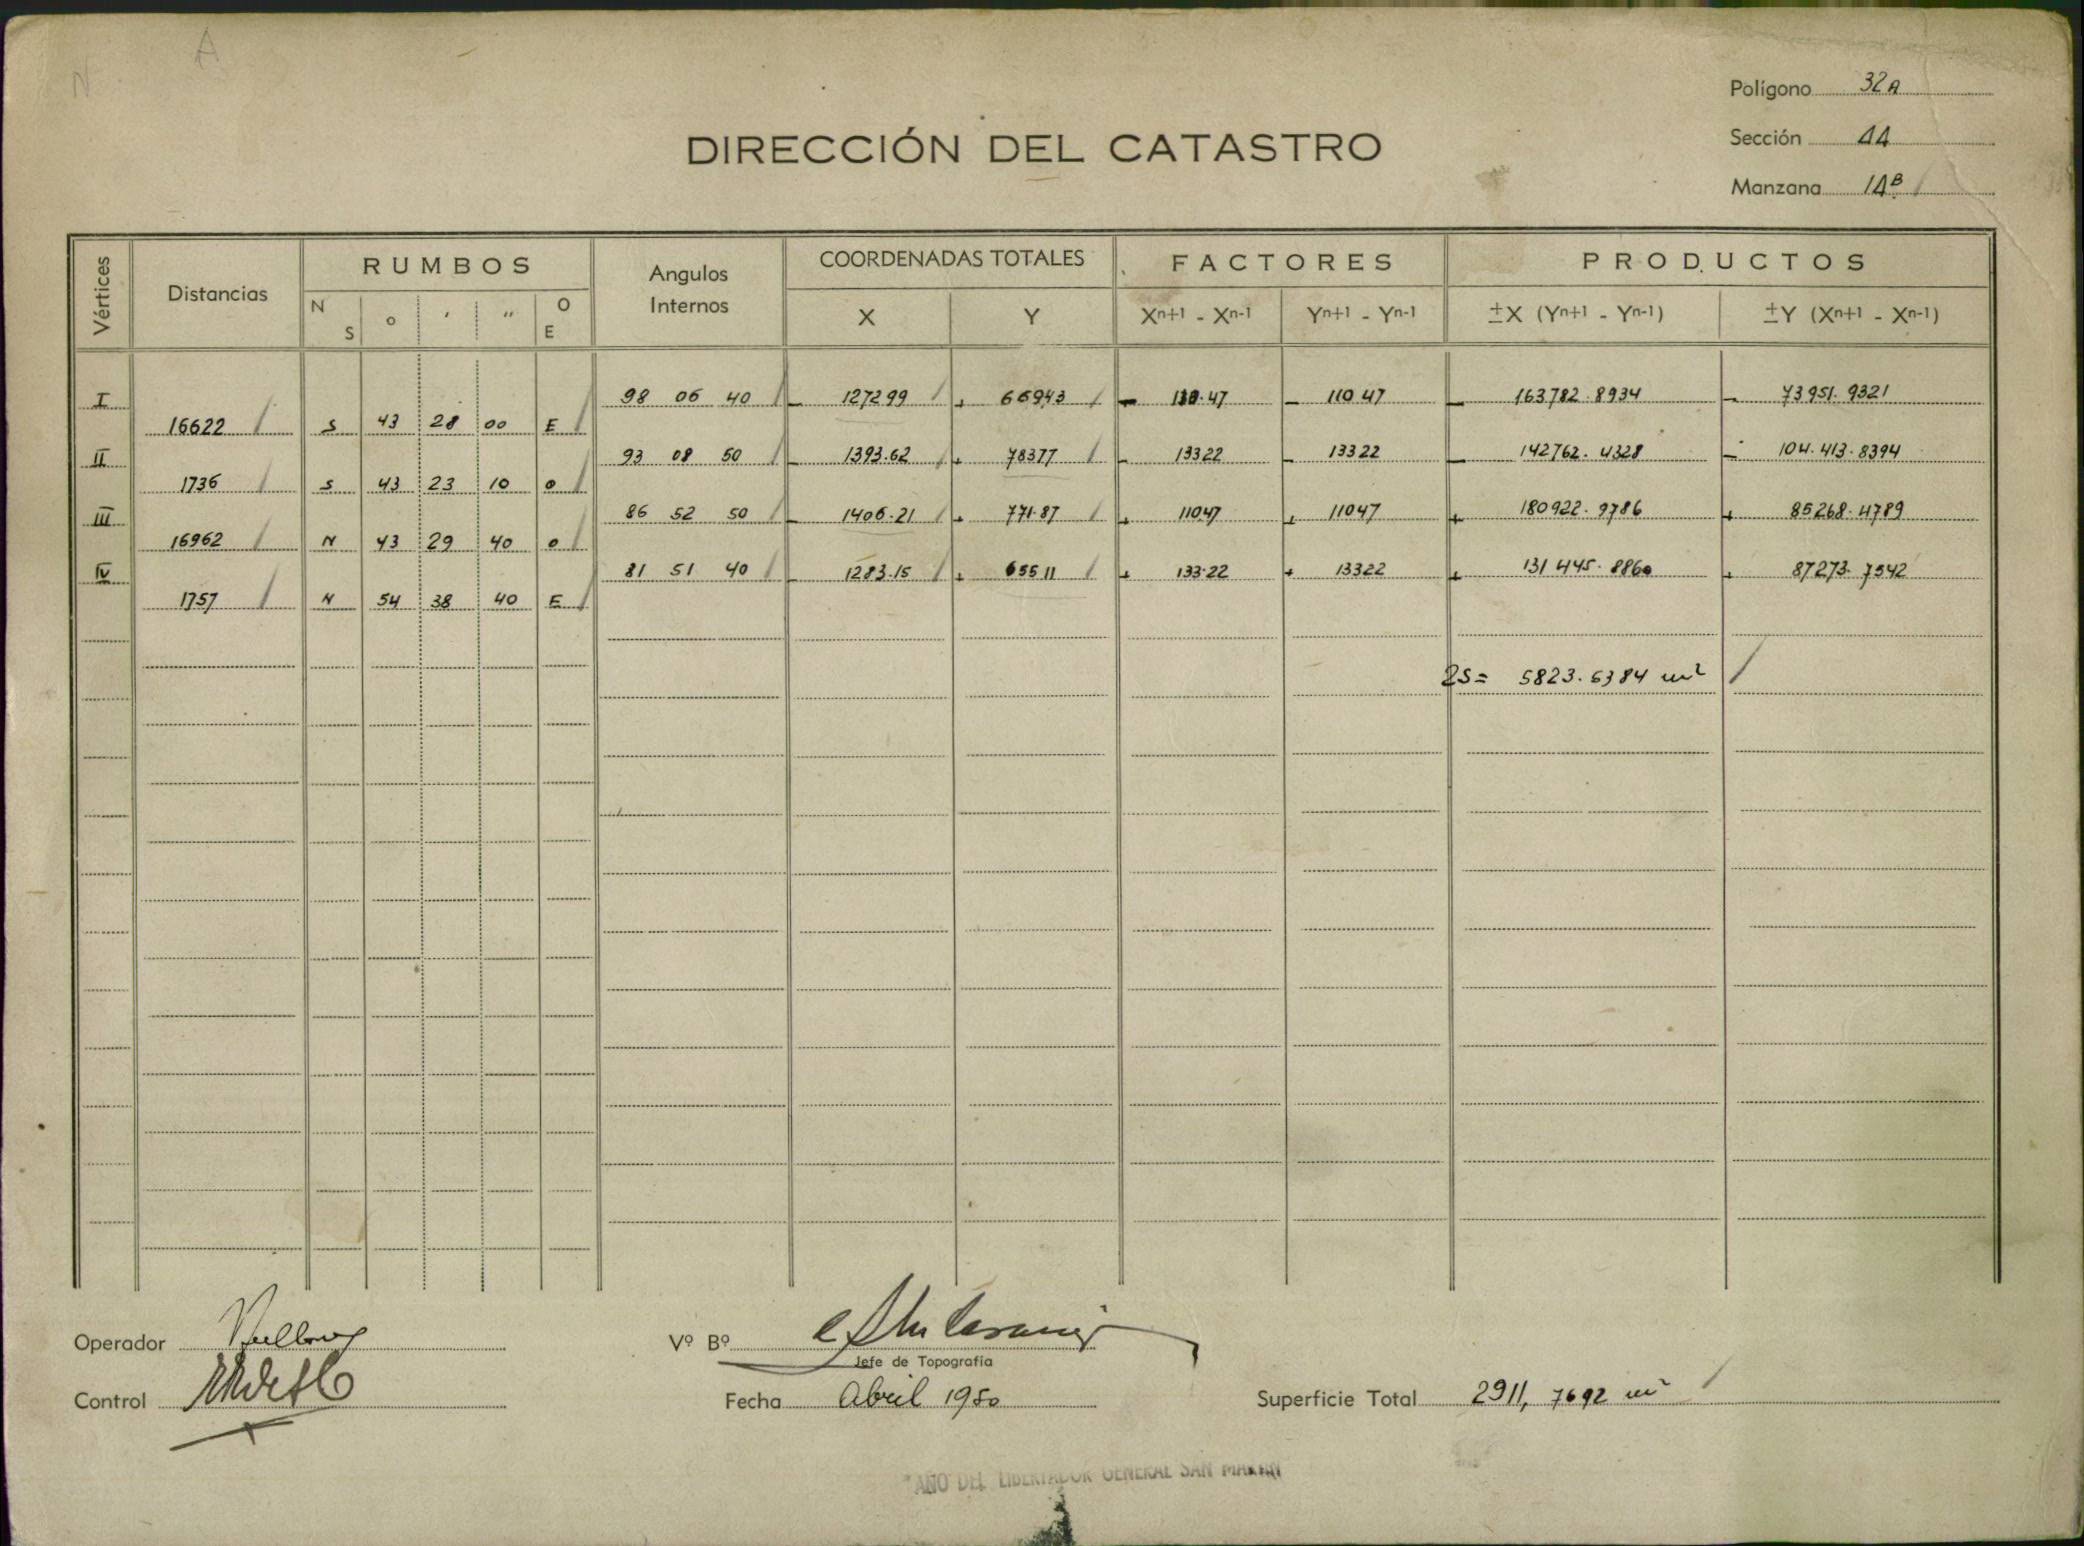 N A
Polígono 32A
DIRECCIÓN DEL CATASTRO
Sección 44
Manzana 14B
Vértices Distancias RUMBOS Angulos Internos COORDENADAS TOTALES FACTORES PRODUCTOS
N S o ' " O E X Y Xn+1 - Xn-1 Yn+1 - Yn-1 ±X (Yn+1 - Yn-1) ±Y (Xn+1 - Xn-1)
I 98 06 40 - 127299 + 66943 - 110.47 - 11047 - 163782.8934 - 73951.9321
16622 S 43 28 00 E
II 93 08 50 - 1393.62 + 78377 - 13322 - 13322 - 142762.4328 - 104.413.8394
1736 S 43 23 10 O
III 86 52 50 - 1406.21 + 771.87 + 11047 + 11047 + 180922.9786 + 85268.4789
16962 N 43 29 40 O
IV 81 51 40 - 1283.15 + 65511 + 133.22 + 13322 + 131445.8860 + 87273.7542
1757 N 54 38 40 E
2S= 5823.5384 m²
Operador
Vº Bº
Jefe de Topografía
Control
Fecha Abril 1950
Superficie Total 2911,7692 m²
"AÑO DEL LIBERTADOR GENERAL SAN MARTIN